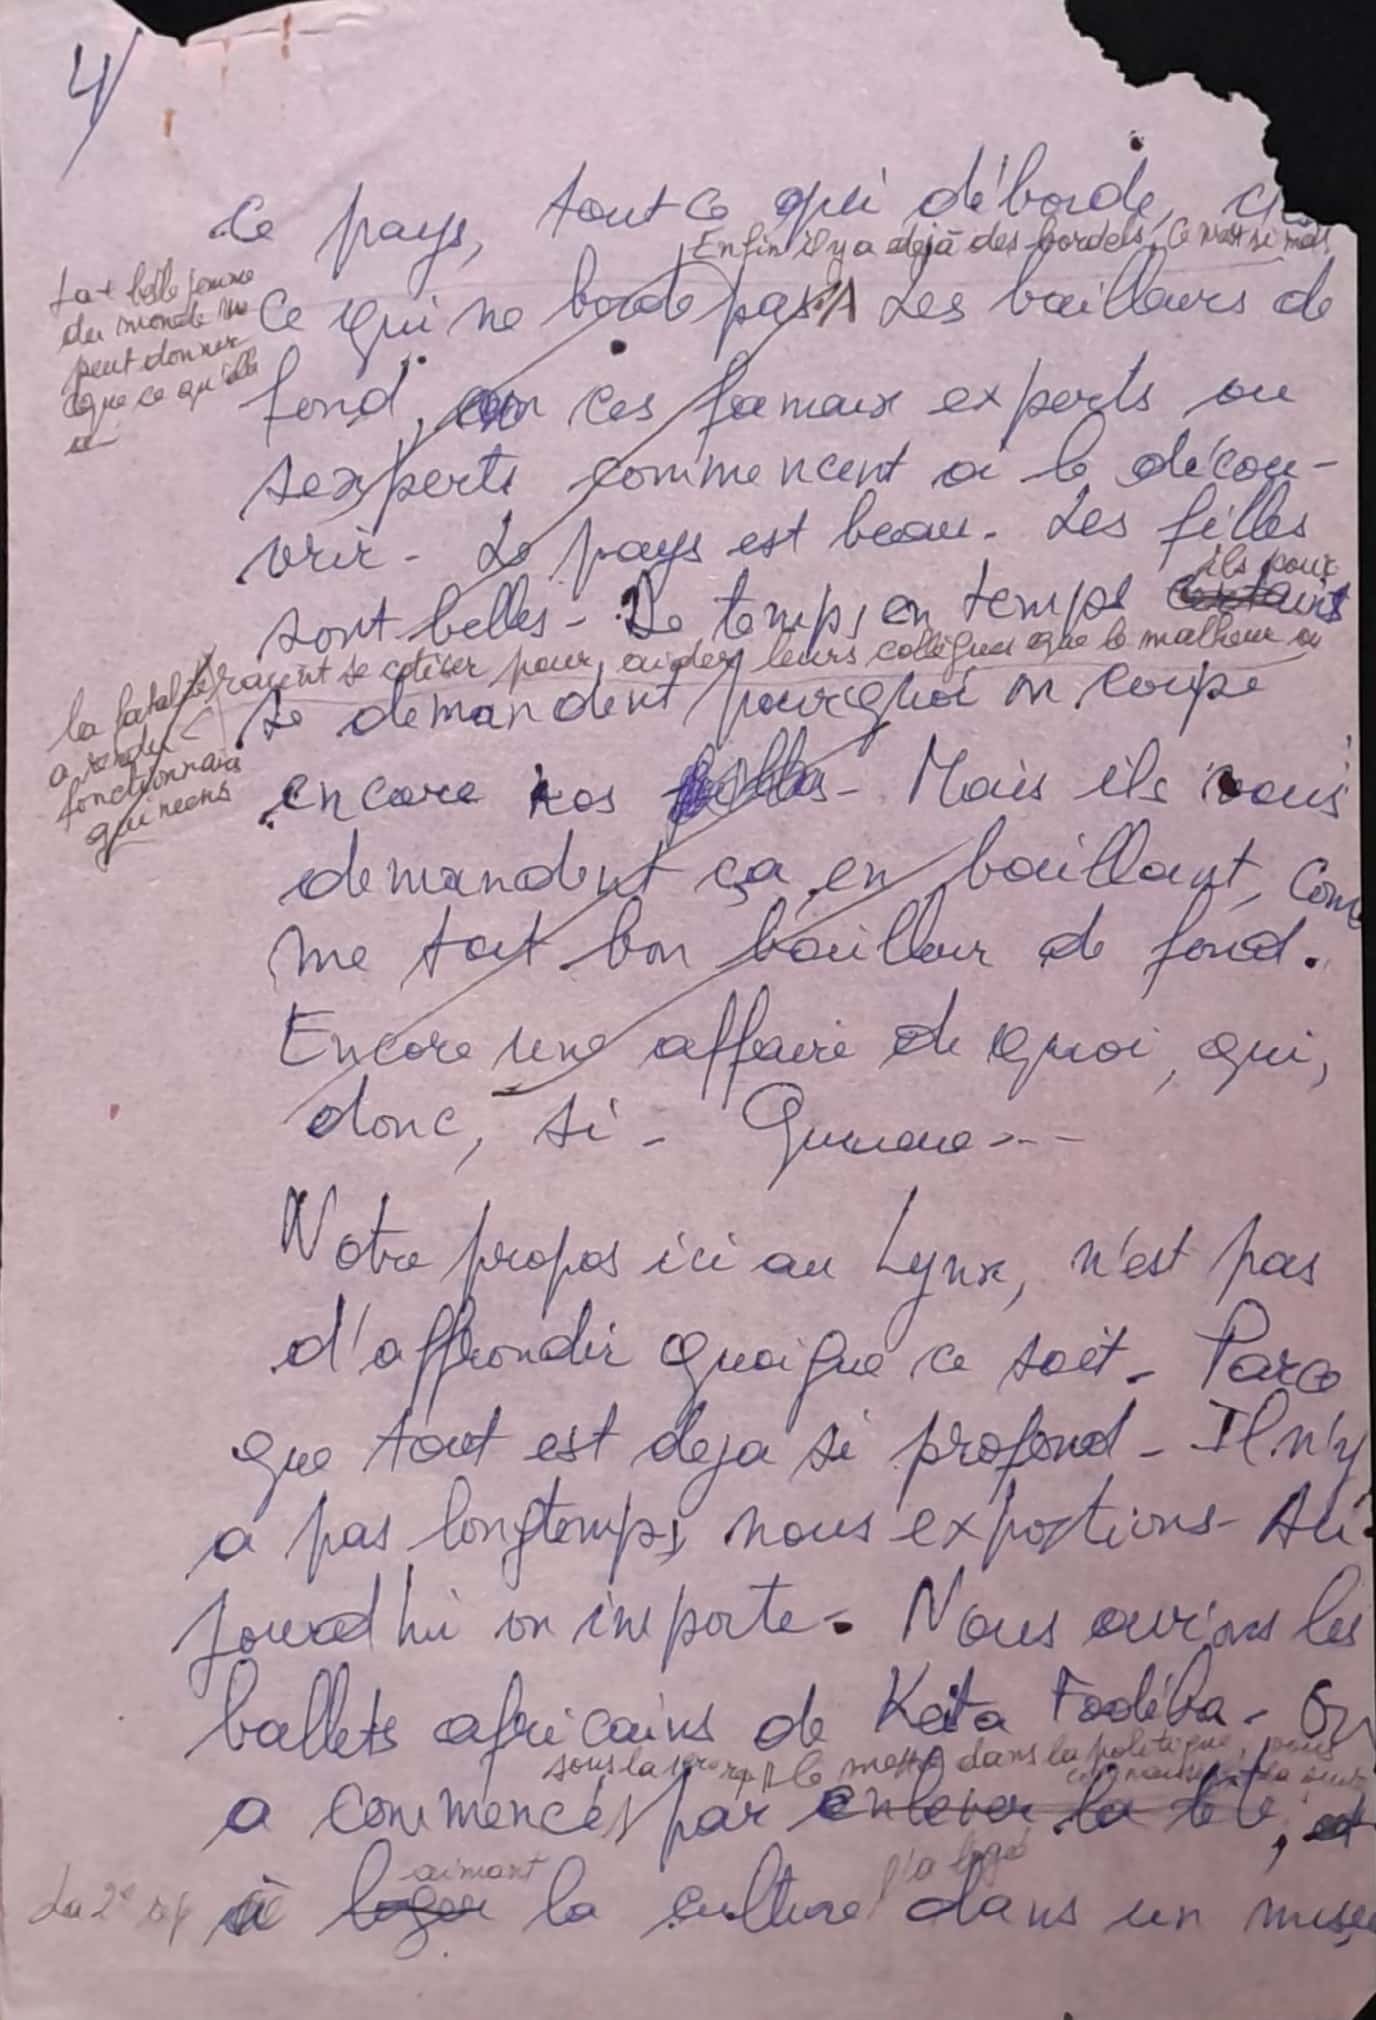 4/
ce pays, tout ce qui déborde,
Enfin il y a dejà des bordels, Ce n'est si mal
La + belle femme
du monde ne
peut donner
que ce qu'elle
a
ce qui ne borde pas. Les bailleurs de
fond, ces fameux experts ou
sexperts commencent à le décou-
vrir. Le pays est beau. Les filles
ils pour
sont belles. De temps en temps certains
raient se cotiser pour aider leurs collègues que le malheur ou
la fatalité
a rendu
fonctionnaires
guineens
se demandent pourquoi on coupe
encore nos filles. Mais ils vous
demandent ça en baillant, com
me tout bon bailleur de fond.
Encore une affaire de quoi, qui,
donc, si -
Notre propos ici au Lynx, n'est pas
d'affrondir quoique ce soit. Parce
que tout est deja si profond. Il n'y
a pas longtemps, nous exportions. Au
jourd hui on importe. Nous avions les
ballets africains de Keita Fodéba. On
sous la 1ere rep le mettre dans la politique, vous
connaissez la suite
a commencé par enlever la tête, et
aimant l'a logé
La 2e rep à loger la culture dans un musée